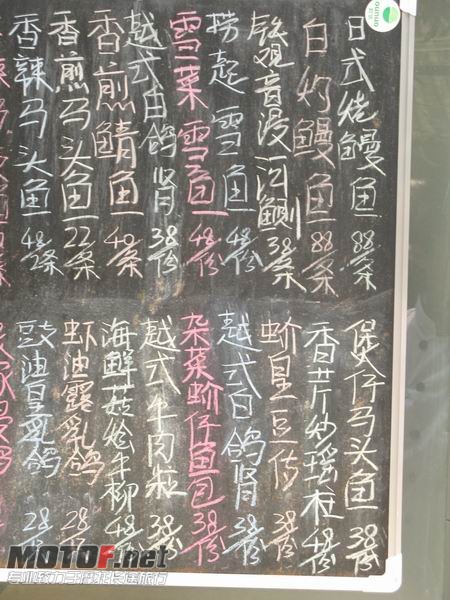 日式烧鳗鱼 88条
白灼鳗鱼 88条
铁观音浸河鲗 38条
捞起雪鱼 48份
雪菜雪鱼 48份
越式白鸽肾 38份
香煎鲭鱼 40条
香煎马头鱼 22条
香辣马头鱼 48条
煲仔马头鱼 38条
香芹炒瑶柱 48份
蚧皇豆付 38份
越式白鸽肾 38份
杂菜蚧仔鱼包 38份
越式牛肉粒 38份
海鲜菇烩牛柳 48份
虾油露乳鸽 28
豉油皇乳鸽 28
MOTOF.net
专业致力于摩托长途旅行